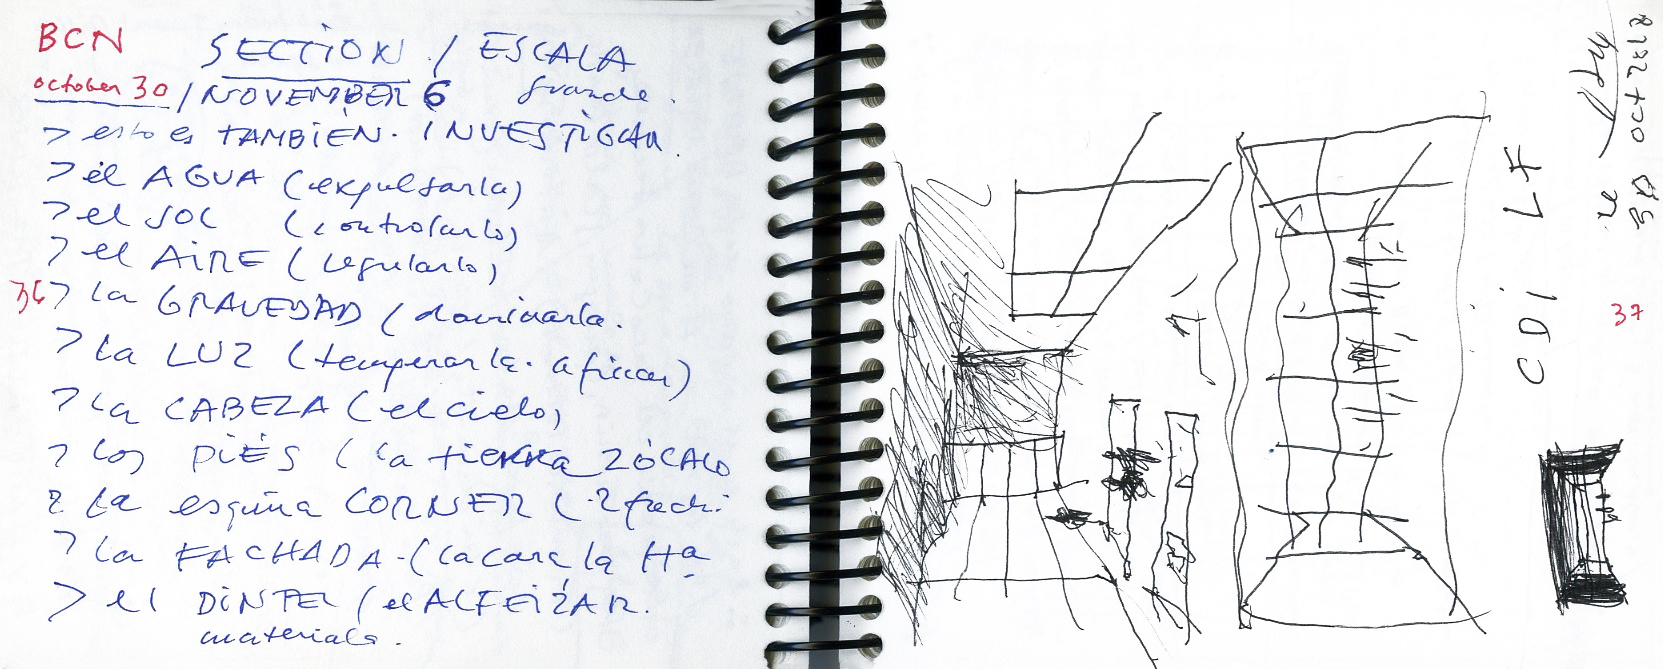 BCN
SECTION / ESCALA
october 30 / NOVEMBER 6 grande.
> esto es TAMBIÉN. INVESTIGAR.
> él AGUA (expulsarla)
> el SOL (controlarlo)
> el AIRE (regularlo)
36 > la GRAVEDAD (dominarla.
> la LUZ (temperarla. afinar)
> la CABEZA (el cielo)
> los PIÉS (la tierra ZÓCALO
> la esquina CORNER (.2 fach.
> la FACHADA - (la cara la Hª
> el DINTEL / el ALFEIZAR.
materials.
CDI LF
30 oct 2012
37